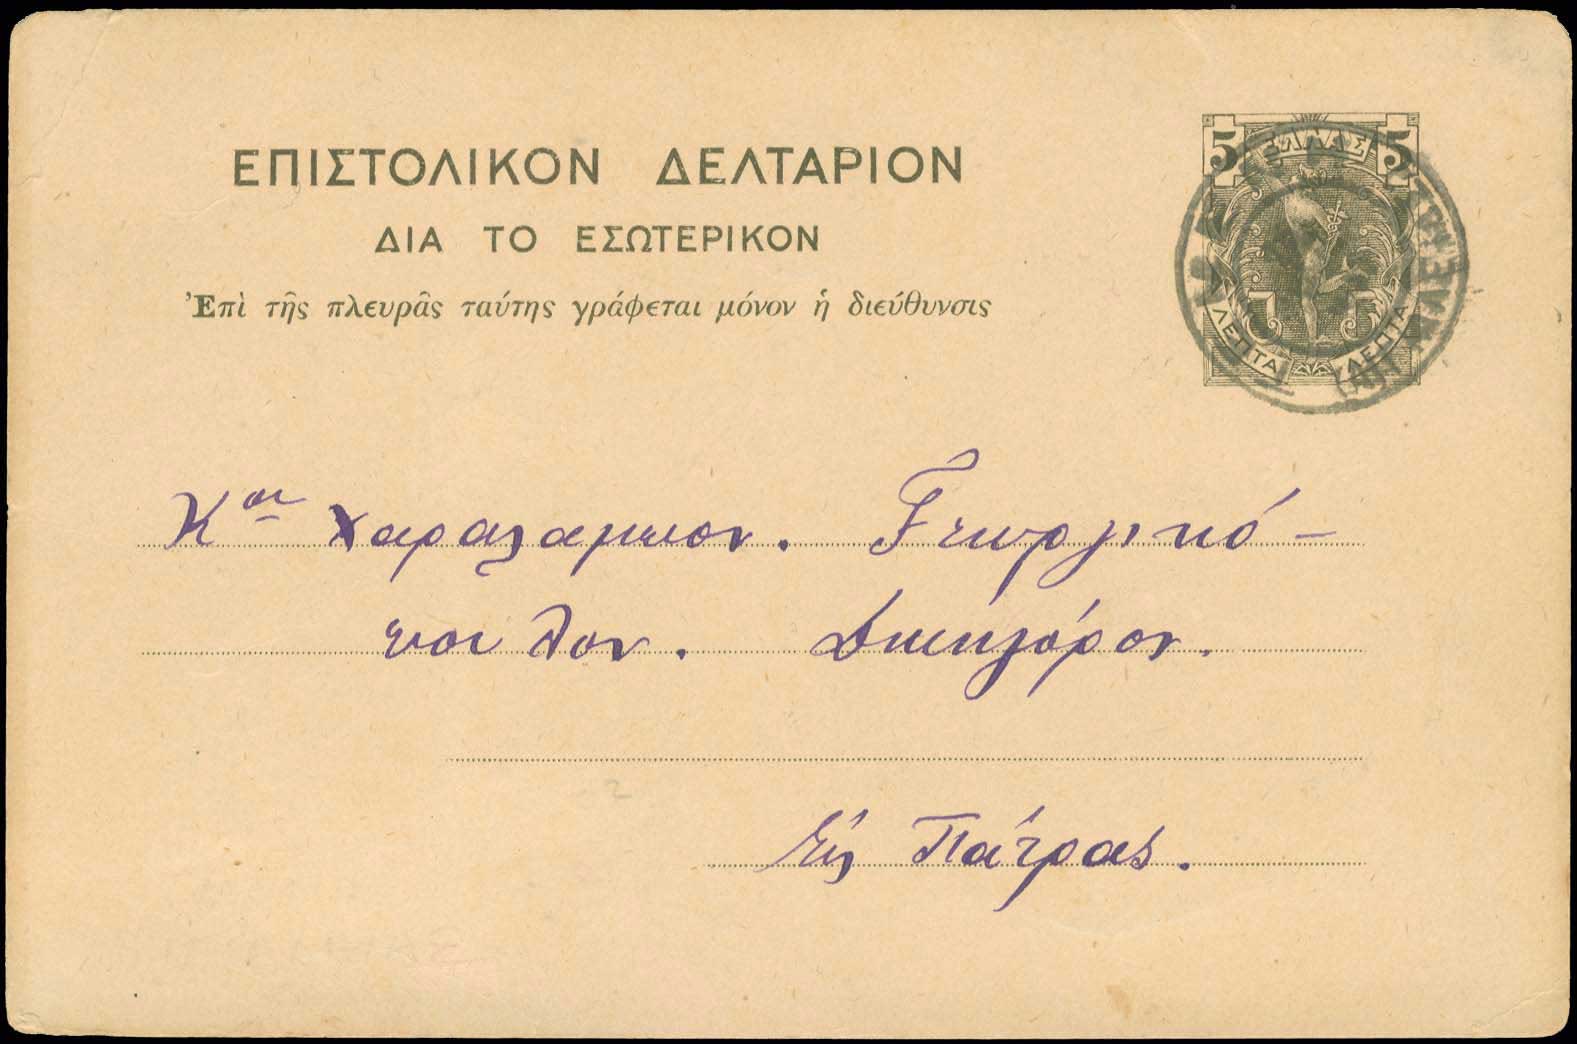 ΕΠΙΣΤΟΛΙΚΟΝ ΔΕΛΤΑΡΙΟΝ
ΔΙΑ ΤΟ ΕΣΩΤΕΡΙΚΟΝ
Ἐπὶ τῆς πλευρᾶς ταύτης γράφεται μόνον ἡ διεύθυνσις
5 ΕΛΛΑΣ 5
ΛΕΠΤΑ ΛΕΠΤΑ
Κον Χαραλαμπον. Γεωργικό-
πουλον. Δικηγόρον.
Εἰς Πάτρας.